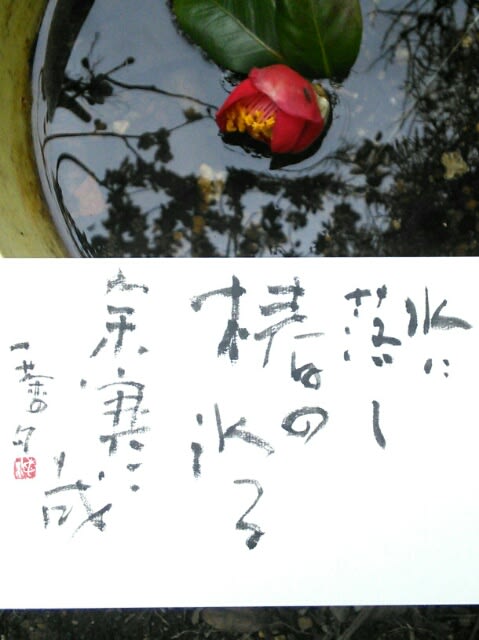 水に
落し
椿の氷る
余寒哉
几董句